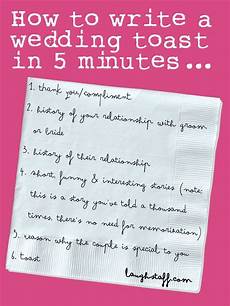 How to write a
wedding toast
in 5 minutes...
1. thank you/compliment
2. history of your relationship with groom
or bride
3. history of their relationship
4. short, funny & interesting stories (note:
this is a story you've told a thousand
times. there's no need for memorisation)
5. reason why the couple is special to you
6. toast
laughstaff.com